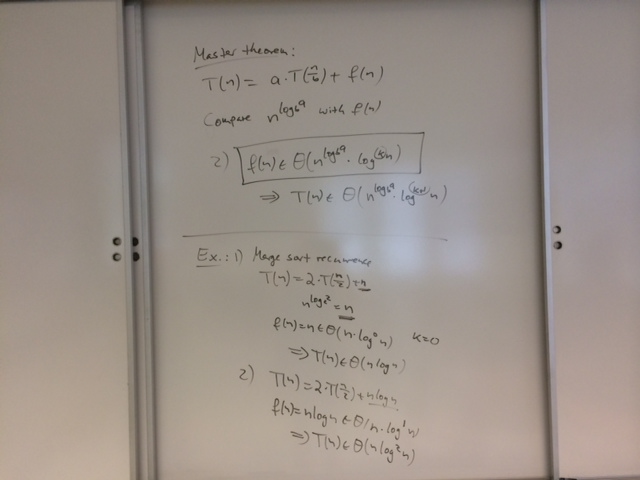 Master theorem:
T(n) = a·T(n/b) + f(n)
Compare n^{log_b a} with f(n)
2) f(n) ∈ Θ(n^{log_b a} · log^{(k)} n)
⇒ T(n) ∈ Θ(n^{log_b a} · log^{(k+1)} n)
Ex.: 1) Merge sort recurrence
T(n) = 2·T(n/2) + n
n^{log_2 2} = n
f(n) = n ∈ Θ(n·log^0 n) k=0
⇒ T(n) ∈ Θ(n log n)
2) T(n) = 2·T(n/2) + n log n
f(n) = n log n ∈ Θ(n·log^1 n)
⇒ T(n) ∈ Θ(n log^2 n)